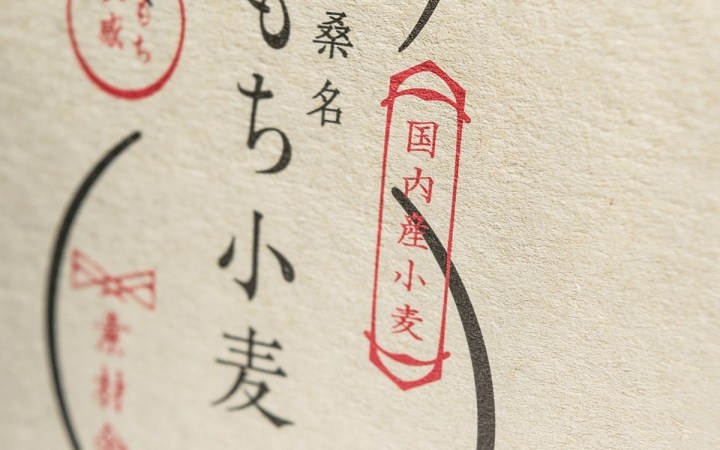 国内産小麦
桑名
もち小麦
もち
素材